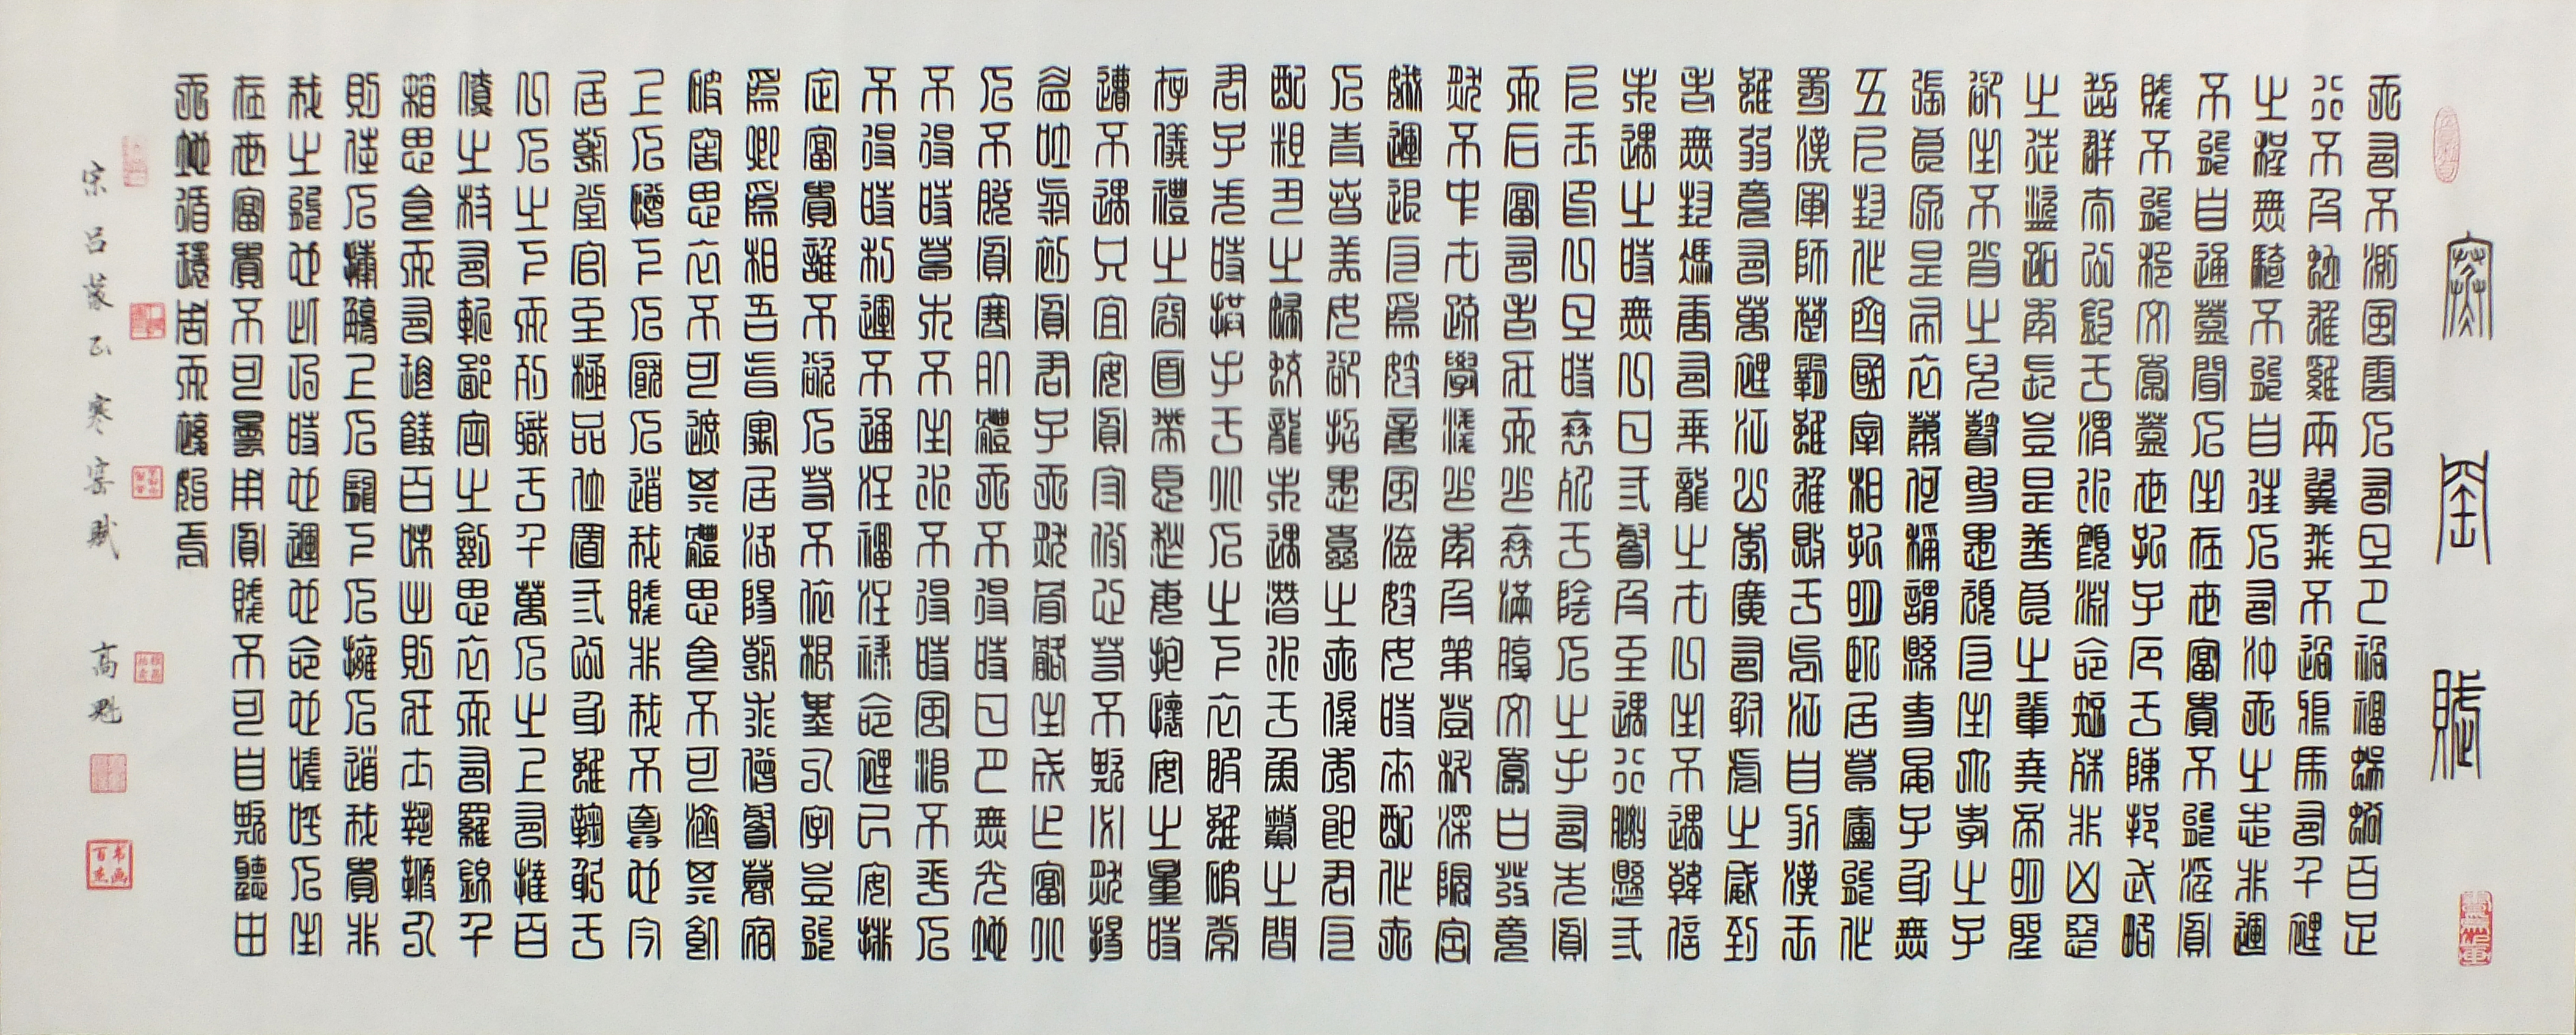 寒窑賦
天有不測風雲人有旦夕禍福蜈蚣百足
行不及蛇雄雞兩翼飛不過鴉馬有千里
之程無騎不能自往人有沖天之志非運
不能自通蓋聞人生在世富貴不能淫貧
賤不能移文章蓋世孔子厄于陳邦武略
超群太公釣于渭水顏淵命短殊非凶惡
之徒盜跖年長豈是善良之輩堯帝明聖
卻生不肖之兒瞽叟愚頑反生大孝之子
張良原是布衣蕭何稱謂縣吏晏子身無
五尺封作齊國宰相孔明臥居草廬能作
蜀漢軍師楚霸雖雄敗于烏江自刎漢王
雖弱竟有萬里江山李廣有射虎之威到
老無封馮唐有乘龍之才一生不遇韓信
未遇之時無一日三餐及至遇行腰懸三
尺玉印一旦時衰死于陰人之手有先貧
而后富有老壯而少衰滿腹文章白發竟
然不中才疏學淺少年及第登科深院宮
娥運退反為妓妾風流妓女時來配作夫
人青春美女卻招愚蠢之夫俊秀郎君反
配粗丑之婦蛟龍未遇潛水于魚鱉之間
君子失時拱手于小人之下衣服雖破常
存儀禮之容面帶憂愁每抱懷安之量時
遭不遇只宜安貧守份心若不欺必然揚
益吐氣初貧君子天然骨骼生成乍富小
人不脫貧寒肌體天不得時日月無光地
不得時草木不生水不得時風浪不平人
不得時利運不通注福注祿命里已安排
定富貴誰不欲人若不依根基八字豈能
為卿為相吾昔寓居洛陽朝求僧餐暮宿
破窖思衣不可遮其體思食不可濟其飢
上人憎下人厭人道我賤非我不棄也今
居朝堂官至極品位置三公身雖鞠躬于
一人之下而列職于千萬人之上有撻百
僚之杖有斬鄙吝之劍思衣而有羅錦千
箱思食而有珍饈百味出則壯士執鞭入
則佳人捧觴上人寵下人擁人道我貴非
我之能也此乃時也運也命也嗟呼人生
在世富貴不可盡用貧賤不可自欺聽由
天地循環周而復始焉
宋呂蒙正寒窑賦 高魁